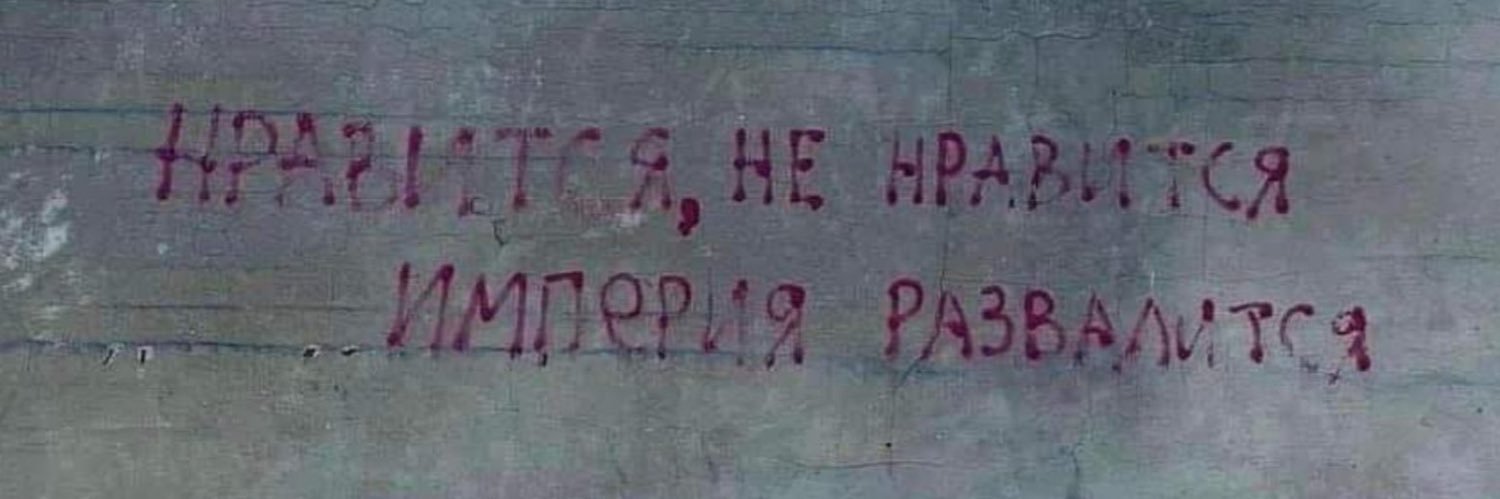 НРАВИТСЯ, НЕ НРАВИТСЯ
ИМПЕРИЯ РАЗВАЛИТСЯ